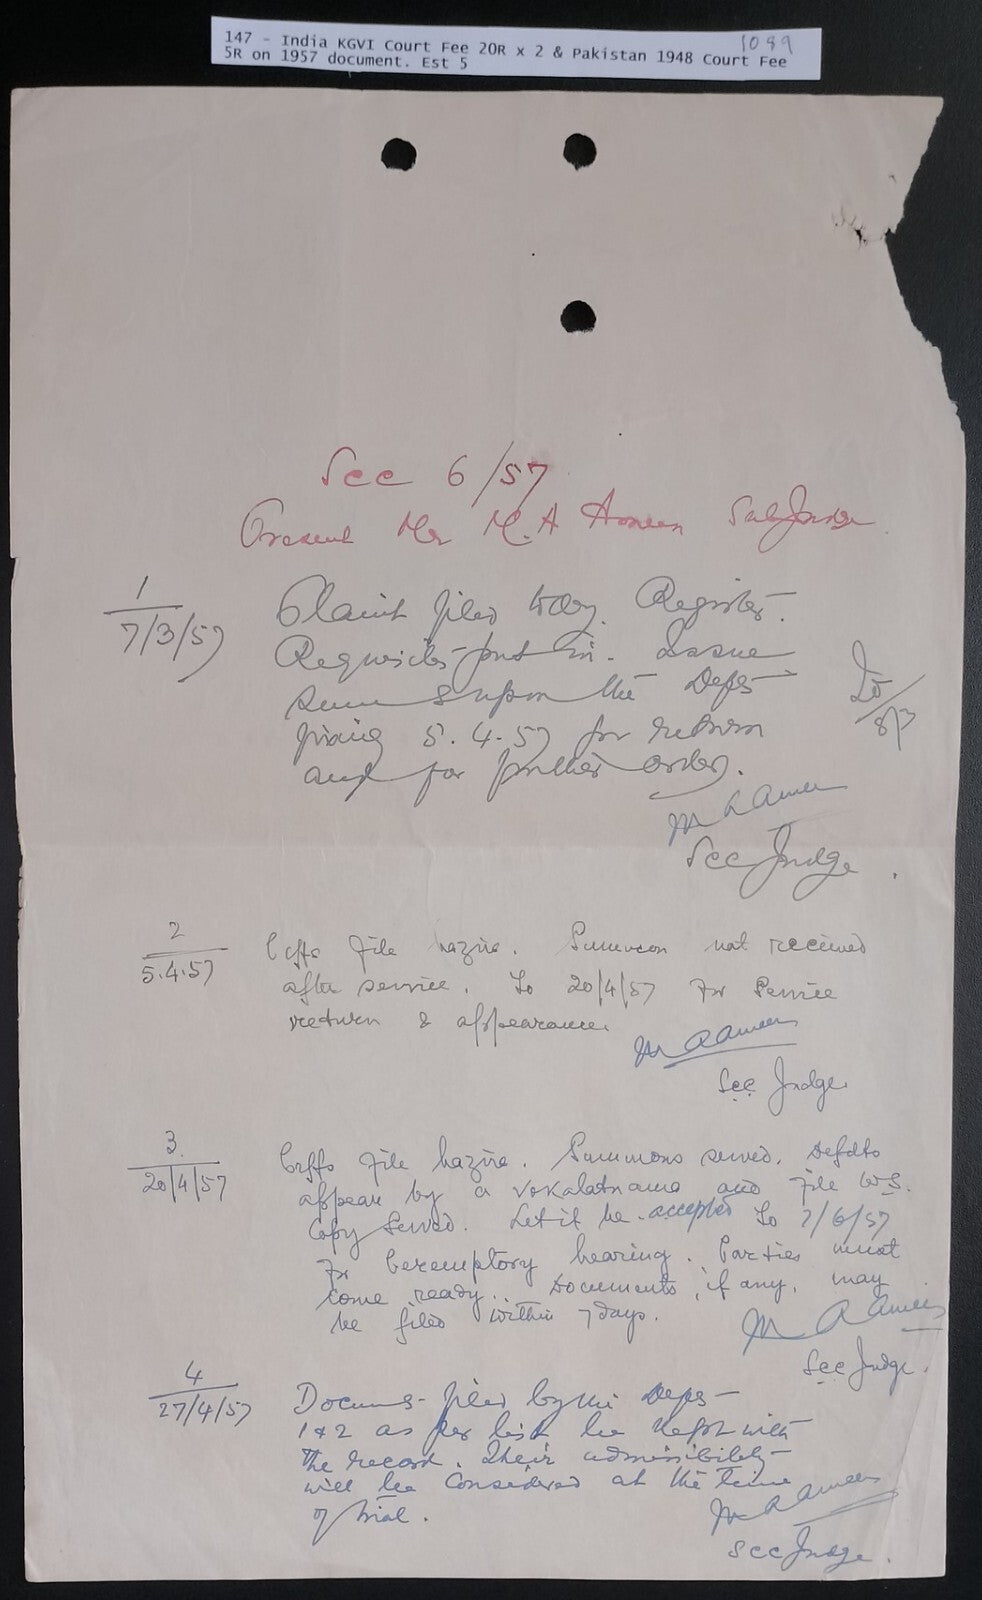 1089
147 - India KGVI Court Fee 20R x 2 & Pakistan 1948 Court Fee
5R on 1957 document. Est 5
Scc 6/57
Present Mr M.A Ameen SubJudge
1
7/3/57
Plaint filed today. Register.
Requisites put in. Issue
summons upon the Defts
fixing 5.4.57 for return
and for further order.
8/3
M A Ameen
Scc Judge.
2
5.4.57
Plffs file hazira. Summon not received
after service. To 20/4/57 for Service
return & appearance.
M A Ameen
Scc Judge.
3
20/4/57
Plffs file hazira. Summons served. Defdts
appear by a vokalatnama and file W.S.
Copy Served. Let it be accepted To 7/6/57
for Peremptory hearing. Parties must
Come ready. Documents, if any, may
be filed within 7 days.
M A Ameen
Scc Judge.
4
27/4/57
Docums filed by the Defts
1 & 2 as per list be kept with
the record. Their admissibility
will be Considered at the time
of trial.
M A Ameen
Scc Judge.